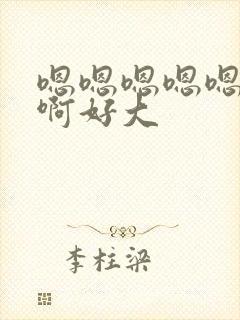 嗯嗯嗯嗯嗯
啊好大
李柱梁